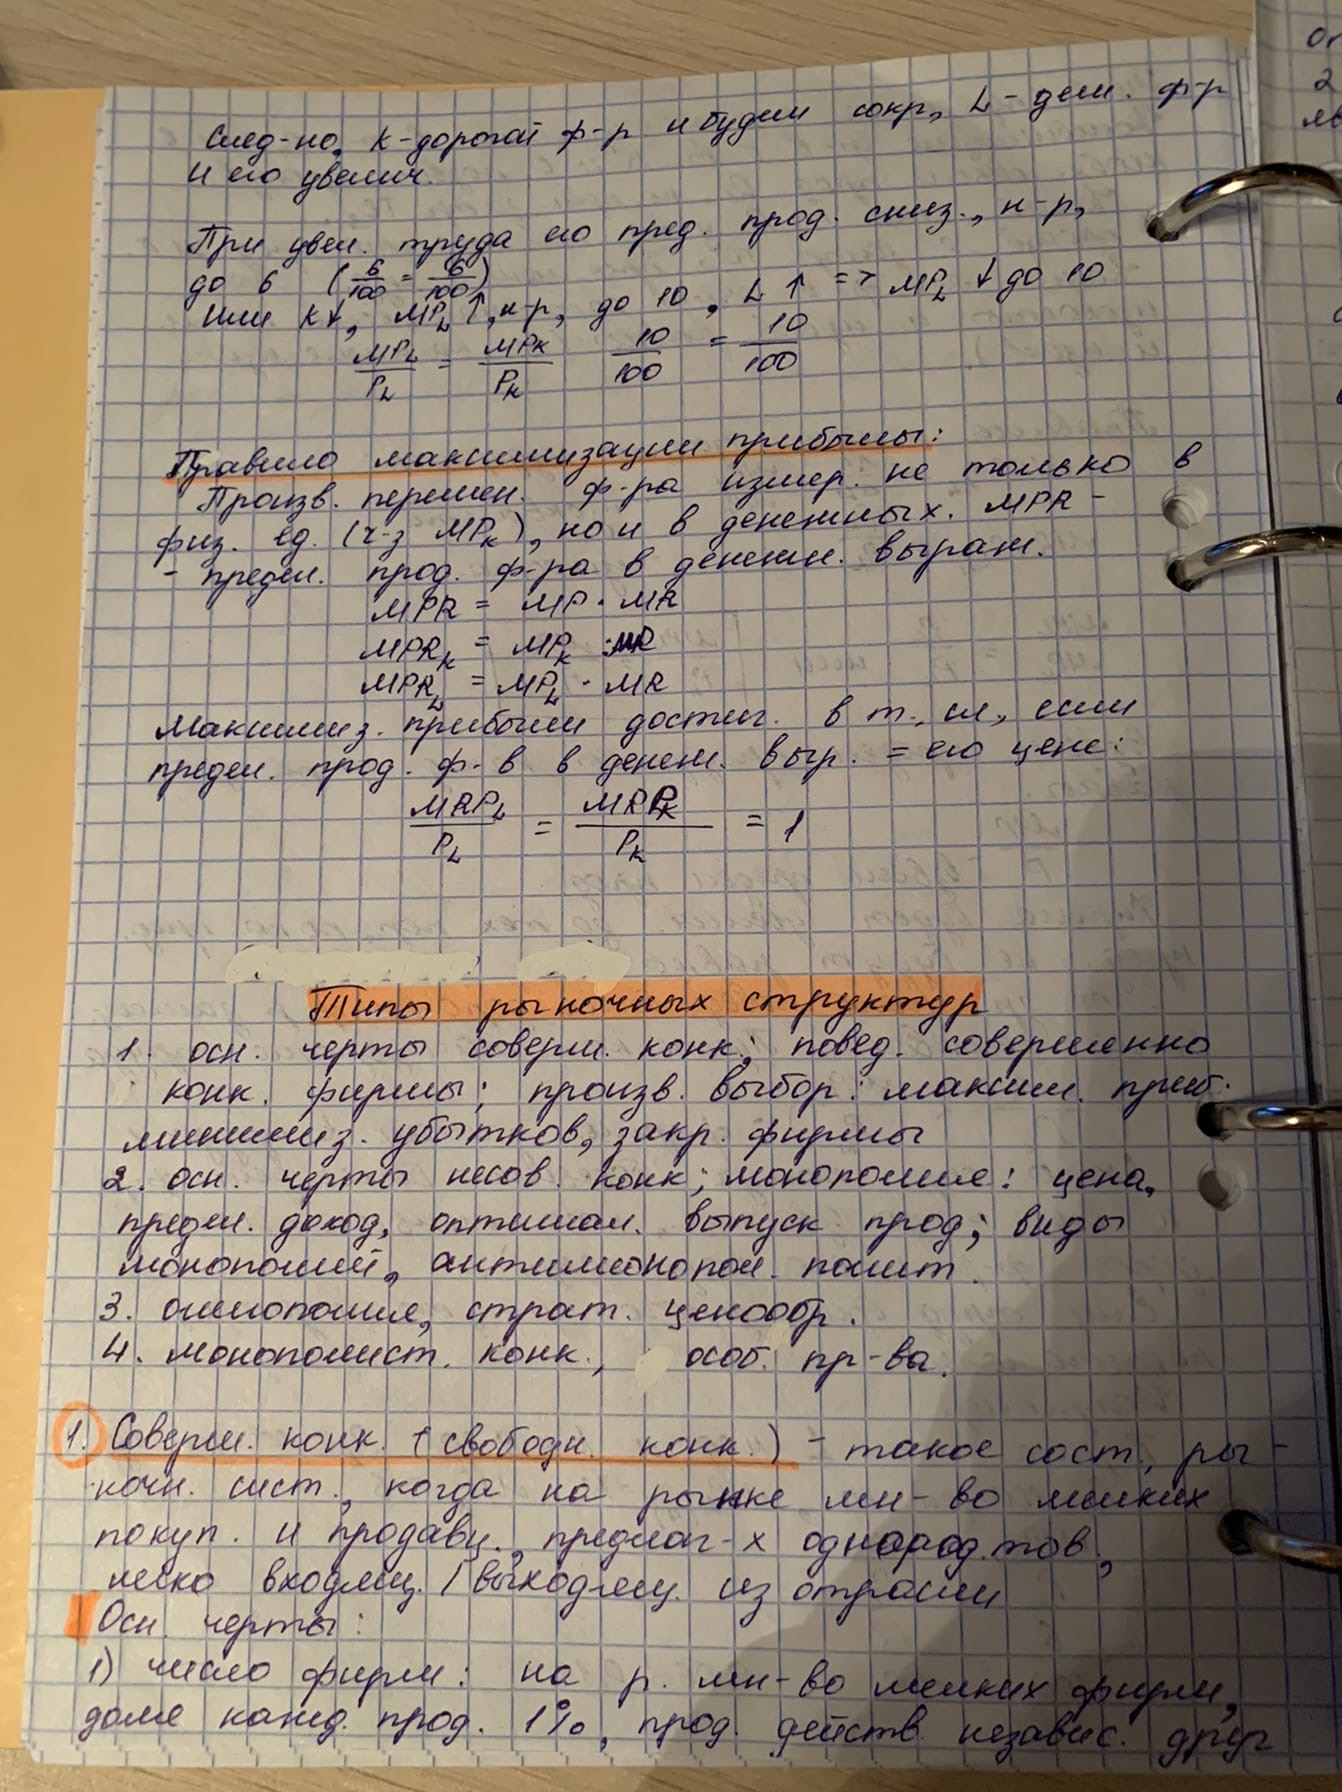 След-но, K-дорогой ф-р и будем сокр, L-деш. ф-р
и его увелич.
При увел. труда его пред. прод. сниз., н-р,
до 6 (6/100 = 6/100)
Или K↓, MP_L ↑, н-р, до 10, L ↑ => MP_L ↓ до 10
MP_L/P_L = MP_K/P_K 10/100 = 10/100
Правило максимизации прибыли:
Произв. перемен. ф-ра измер. не только в
физ. ед. (ч-з MP_K), но и в денежных. MPR -
- предел. прод. ф-ра в денежн. выраж.
MPR = MP · MR
MPR_K = MP_K · MR
MPR_L = MP_L · MR
Максимиз. прибыли достиг. в т. сл, если
предел. прод. ф-в в денеж. выр. = его цене:
MRP_L/P_L = MRP_K/P_K = 1
Типы рыночных структур
1. осн. черты соверш. конк; повед. совершенно
конк. фирмы; произв. выбор: максим. приб.
миним­из. убытков, закр. фирмы
2. осн. черты несов. конк; монополия: цена,
предел. доход, оптимал. выпуск прод; виды
монополий, антимонопол. полит.
3. олигополия, страт. ценообр.
4. монополист. конк., особ. пр-ва.
1. Соверш. конк. (свободн. конк.) - такое сост, ры-
ночн. сист., когда на рынке мн-во мелких
покуп. и продавц., предлаг-х однород. тов,
легко входящ. / выходящ. из отрасли
Осн. черты:
1) число фирм: на р. мн-во мелких фирм,
доля кажд. прод. 1%, прод. действ. независ. друг